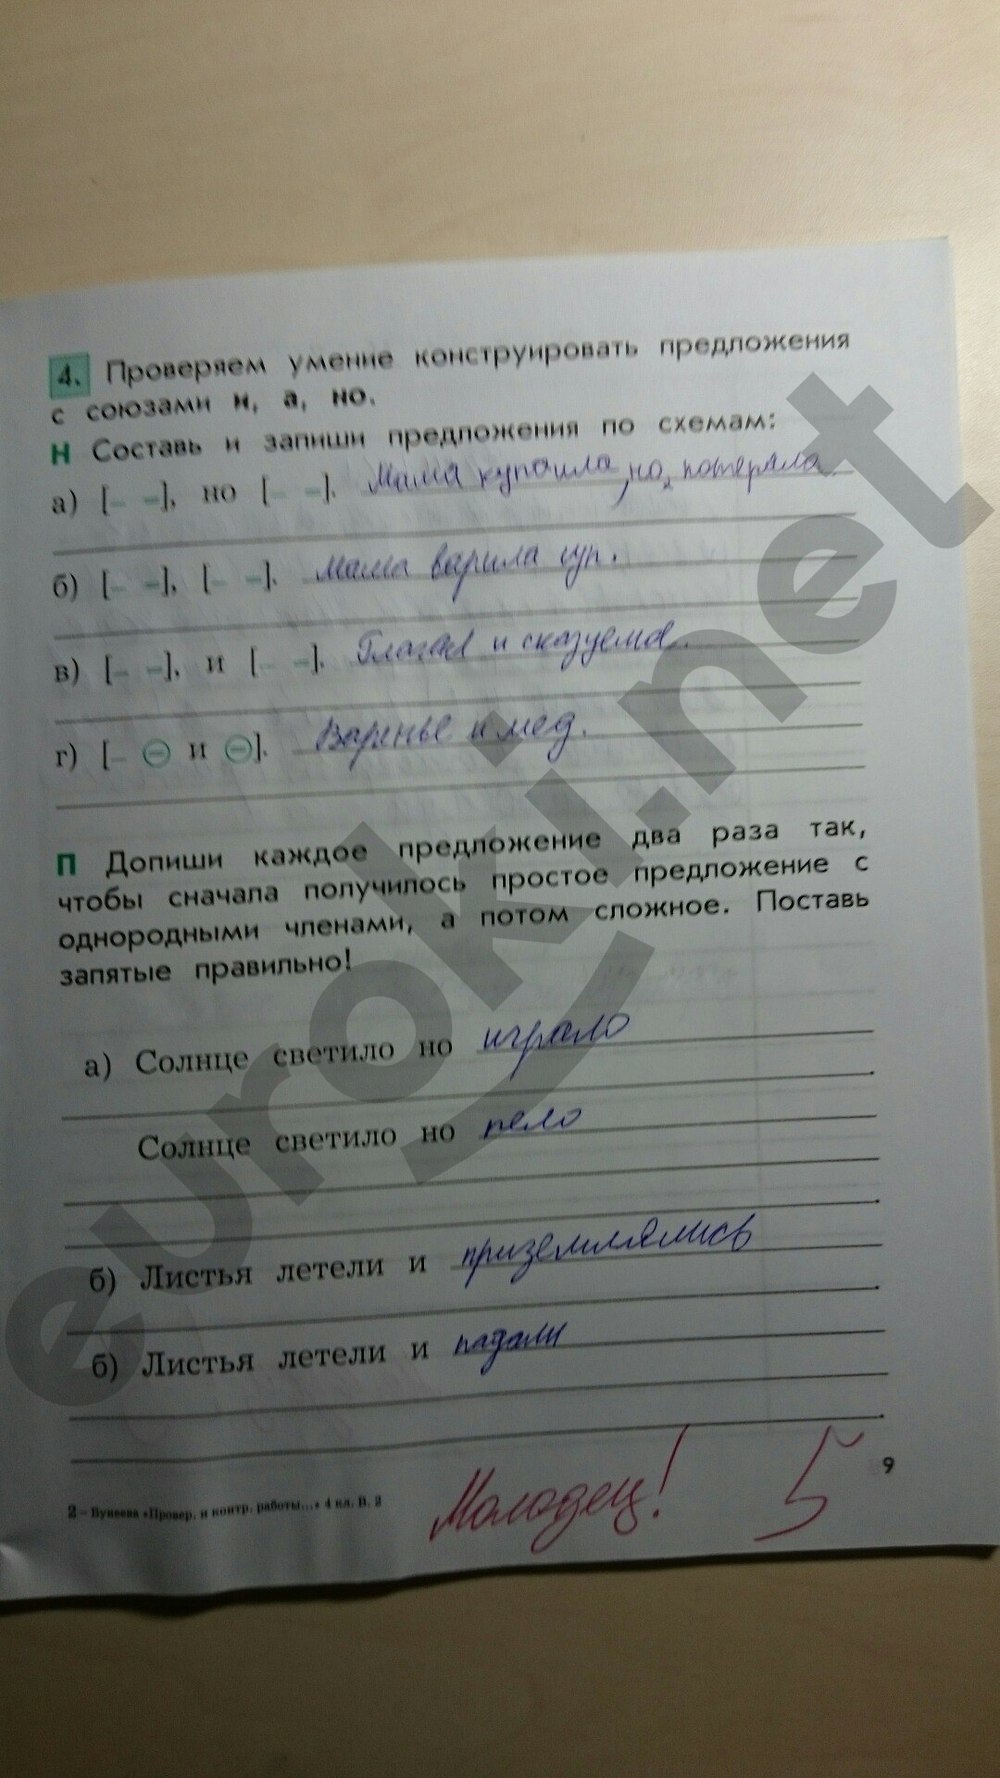 4. Проверяем умение конструировать предложения
с союзами и, а, но.
Н Составь и запиши предложения по схемам:
а) [– –], но [– –]. Мама купила, но потеряла.
б) [– –], [– –]. Мама варила суп.
в) [– –], и [– –]. и сказуемое.
г) [– ⊖ и ⊖]. Варенье и мед.
П Допиши каждое предложение два раза так,
чтобы сначала получилось простое предложение с
однородными членами, а потом сложное. Поставь
запятые правильно!
а) Солнце светило но играло
Солнце светило но пело
б) Листья летели и приземлялись
б) Листья летели и падали
9
2 – Бунеева «Провер. и контр. работы...» 4 кл. В. 2
Молодец! 5
euroki.net